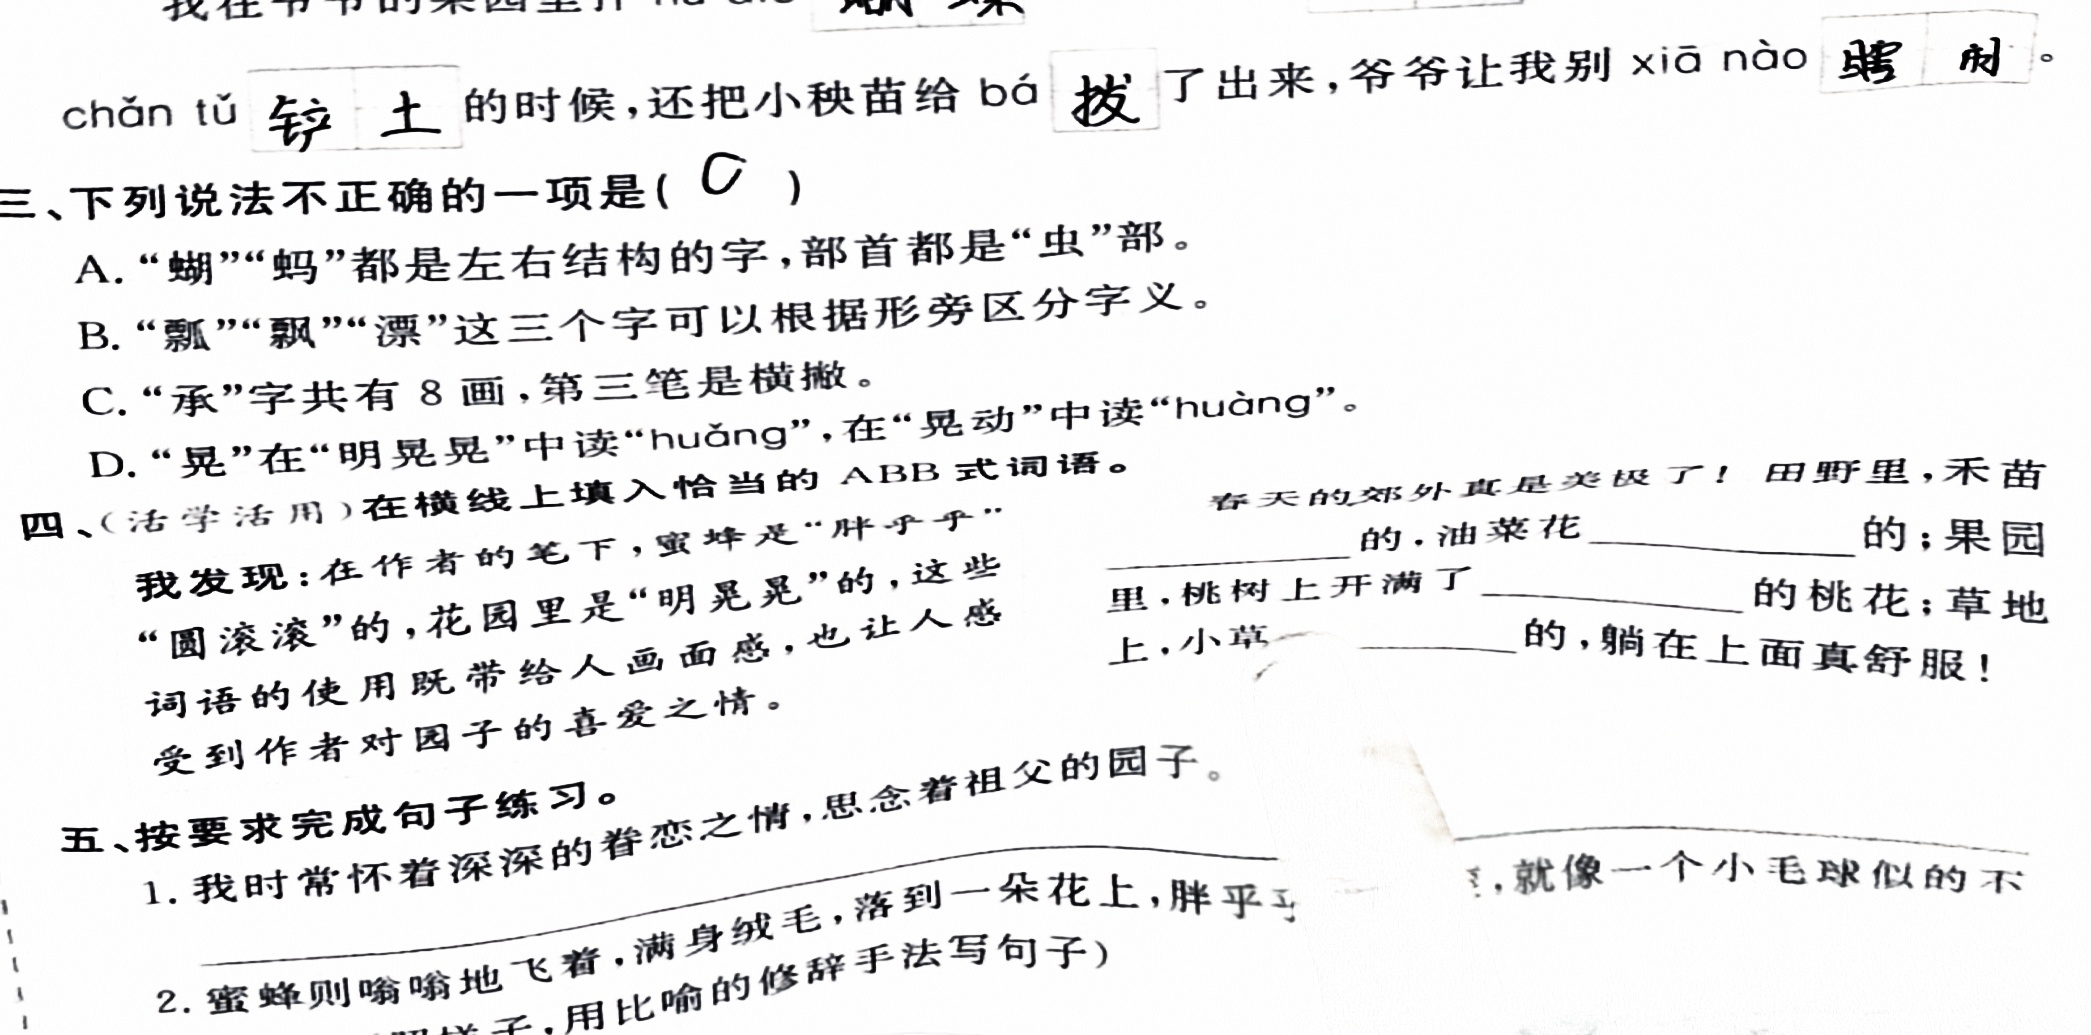 我在爷爷的菜园里
chǎn tǔ 铲 土 的时候,还把小秧苗给 bá 拔 了出来,爷爷让我别 xiā nào 瞎 闹 。
三、下列说法不正确的一项是( C )
A.“蝴”“蚂”都是左右结构的字,部首都是“虫”部。
B.“瓢”“飘”“漂”这三个字可以根据形旁区分字义。
C.“承”字共有 8 画,第三笔是横撇。
D.“晃”在“明晃晃”中读“huǎng”,在“晃动”中读“huàng”。
四、(活学活用)在横线上填入恰当的 ABB 式词语。
我发现:在作者的笔下,蜜蜂是“胖乎乎”
“圆滚滚”的,花园里是“明晃晃”的,这些
词语的使用既带给人画面感,也让人感
受到作者对园子的喜爱之情。
春天的郊外真是美极了! 田野里,禾苗
的,油菜花 的;果园
里,桃树上开满了 的桃花;草地
上,小草 的,躺在上面真舒服!
五、按要求完成句子练习。
1. 我时常怀着深深的眷恋之情,思念着祖父的园子。
2. 蜜蜂则嗡嗡地飞着,满身绒毛,落到一朵花上,胖乎 ,就像一个小毛球似的不
样子,用比喻的修辞手法写句子)